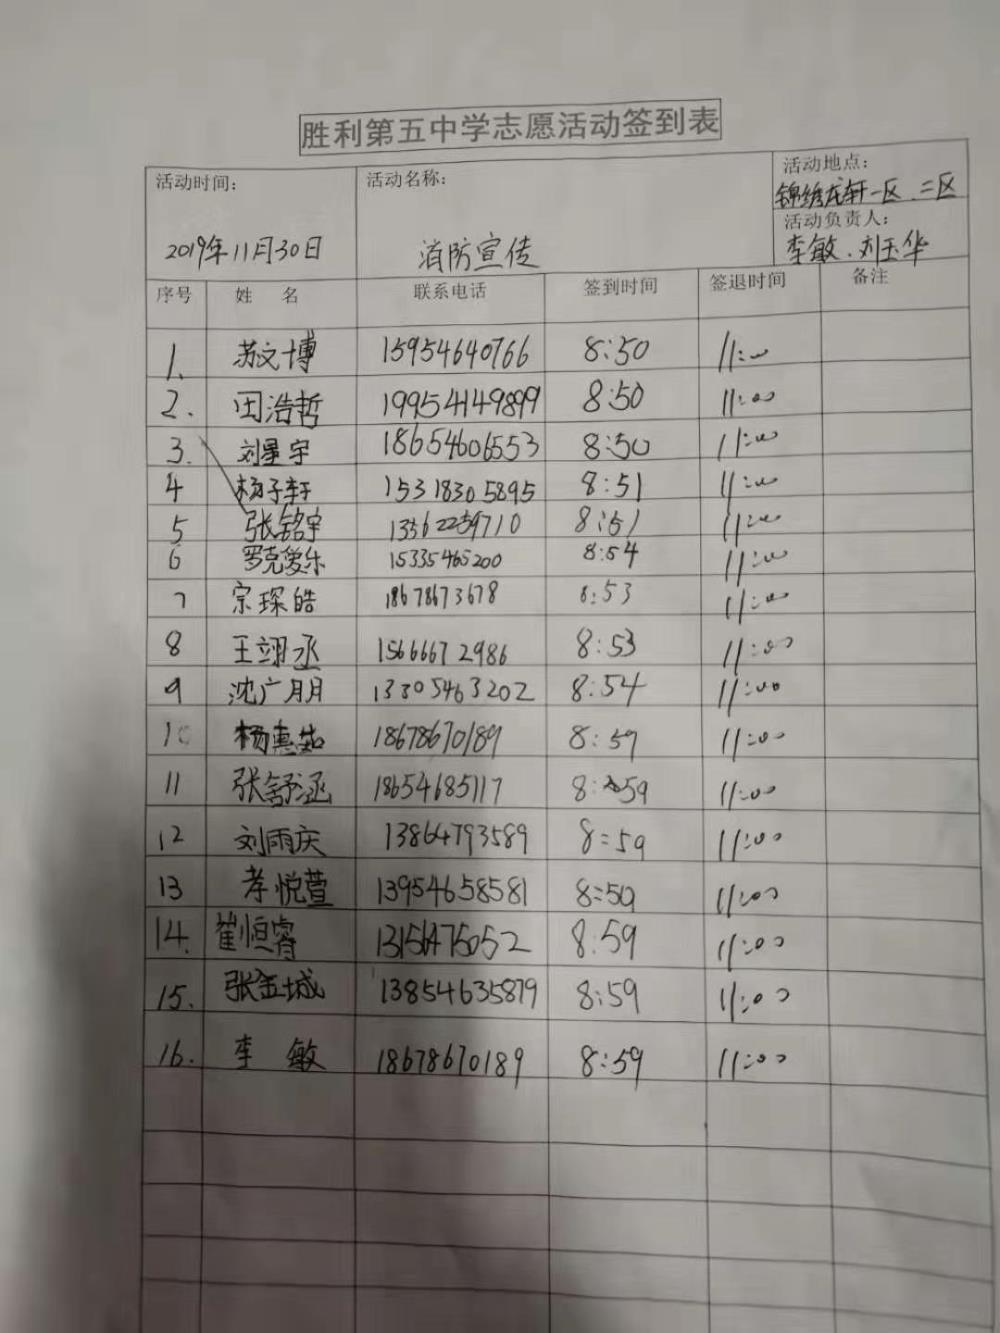 胜利第五中学志愿活动签到表
活动时间: 活动名称: 活动地点:
锦绣龙轩一区、二区
活动负责人:
2019年11月30日 消防宣传 李敏、刘玉华
序号 姓名 联系电话 签到时间 签退时间 备注
1. 苏文博 15954640766 8:50 11:00
2. 田浩哲 19954149899 8:50 11:00
3. 刘星宇 18654606553 8:50 11:00
4 杨子轩 15318305895 8:51 11:00
5 张铭宇 8:51 11:00
6 罗克爱乐 15335465200 8:54 11:00
7 宗琛皓 18678673678 8:53 11:00
8 王翊丞 15666672986 8:53 11:00
9 沈广月月 13305463202 8:54 11:00
10 杨惠茹 18678670189 8:59 11:00
11 张舒涵 18654685117 8:59 11:00
12 刘雨庆 13864793589 8:59 11:00
13 李悦萱 13954658581 8:50 11:00
14. 崔恒睿 13156475052 8:59 11:00
15. 张金城 13854635879 8:59 11:00
16. 李敏 18678670189 8:59 11:00